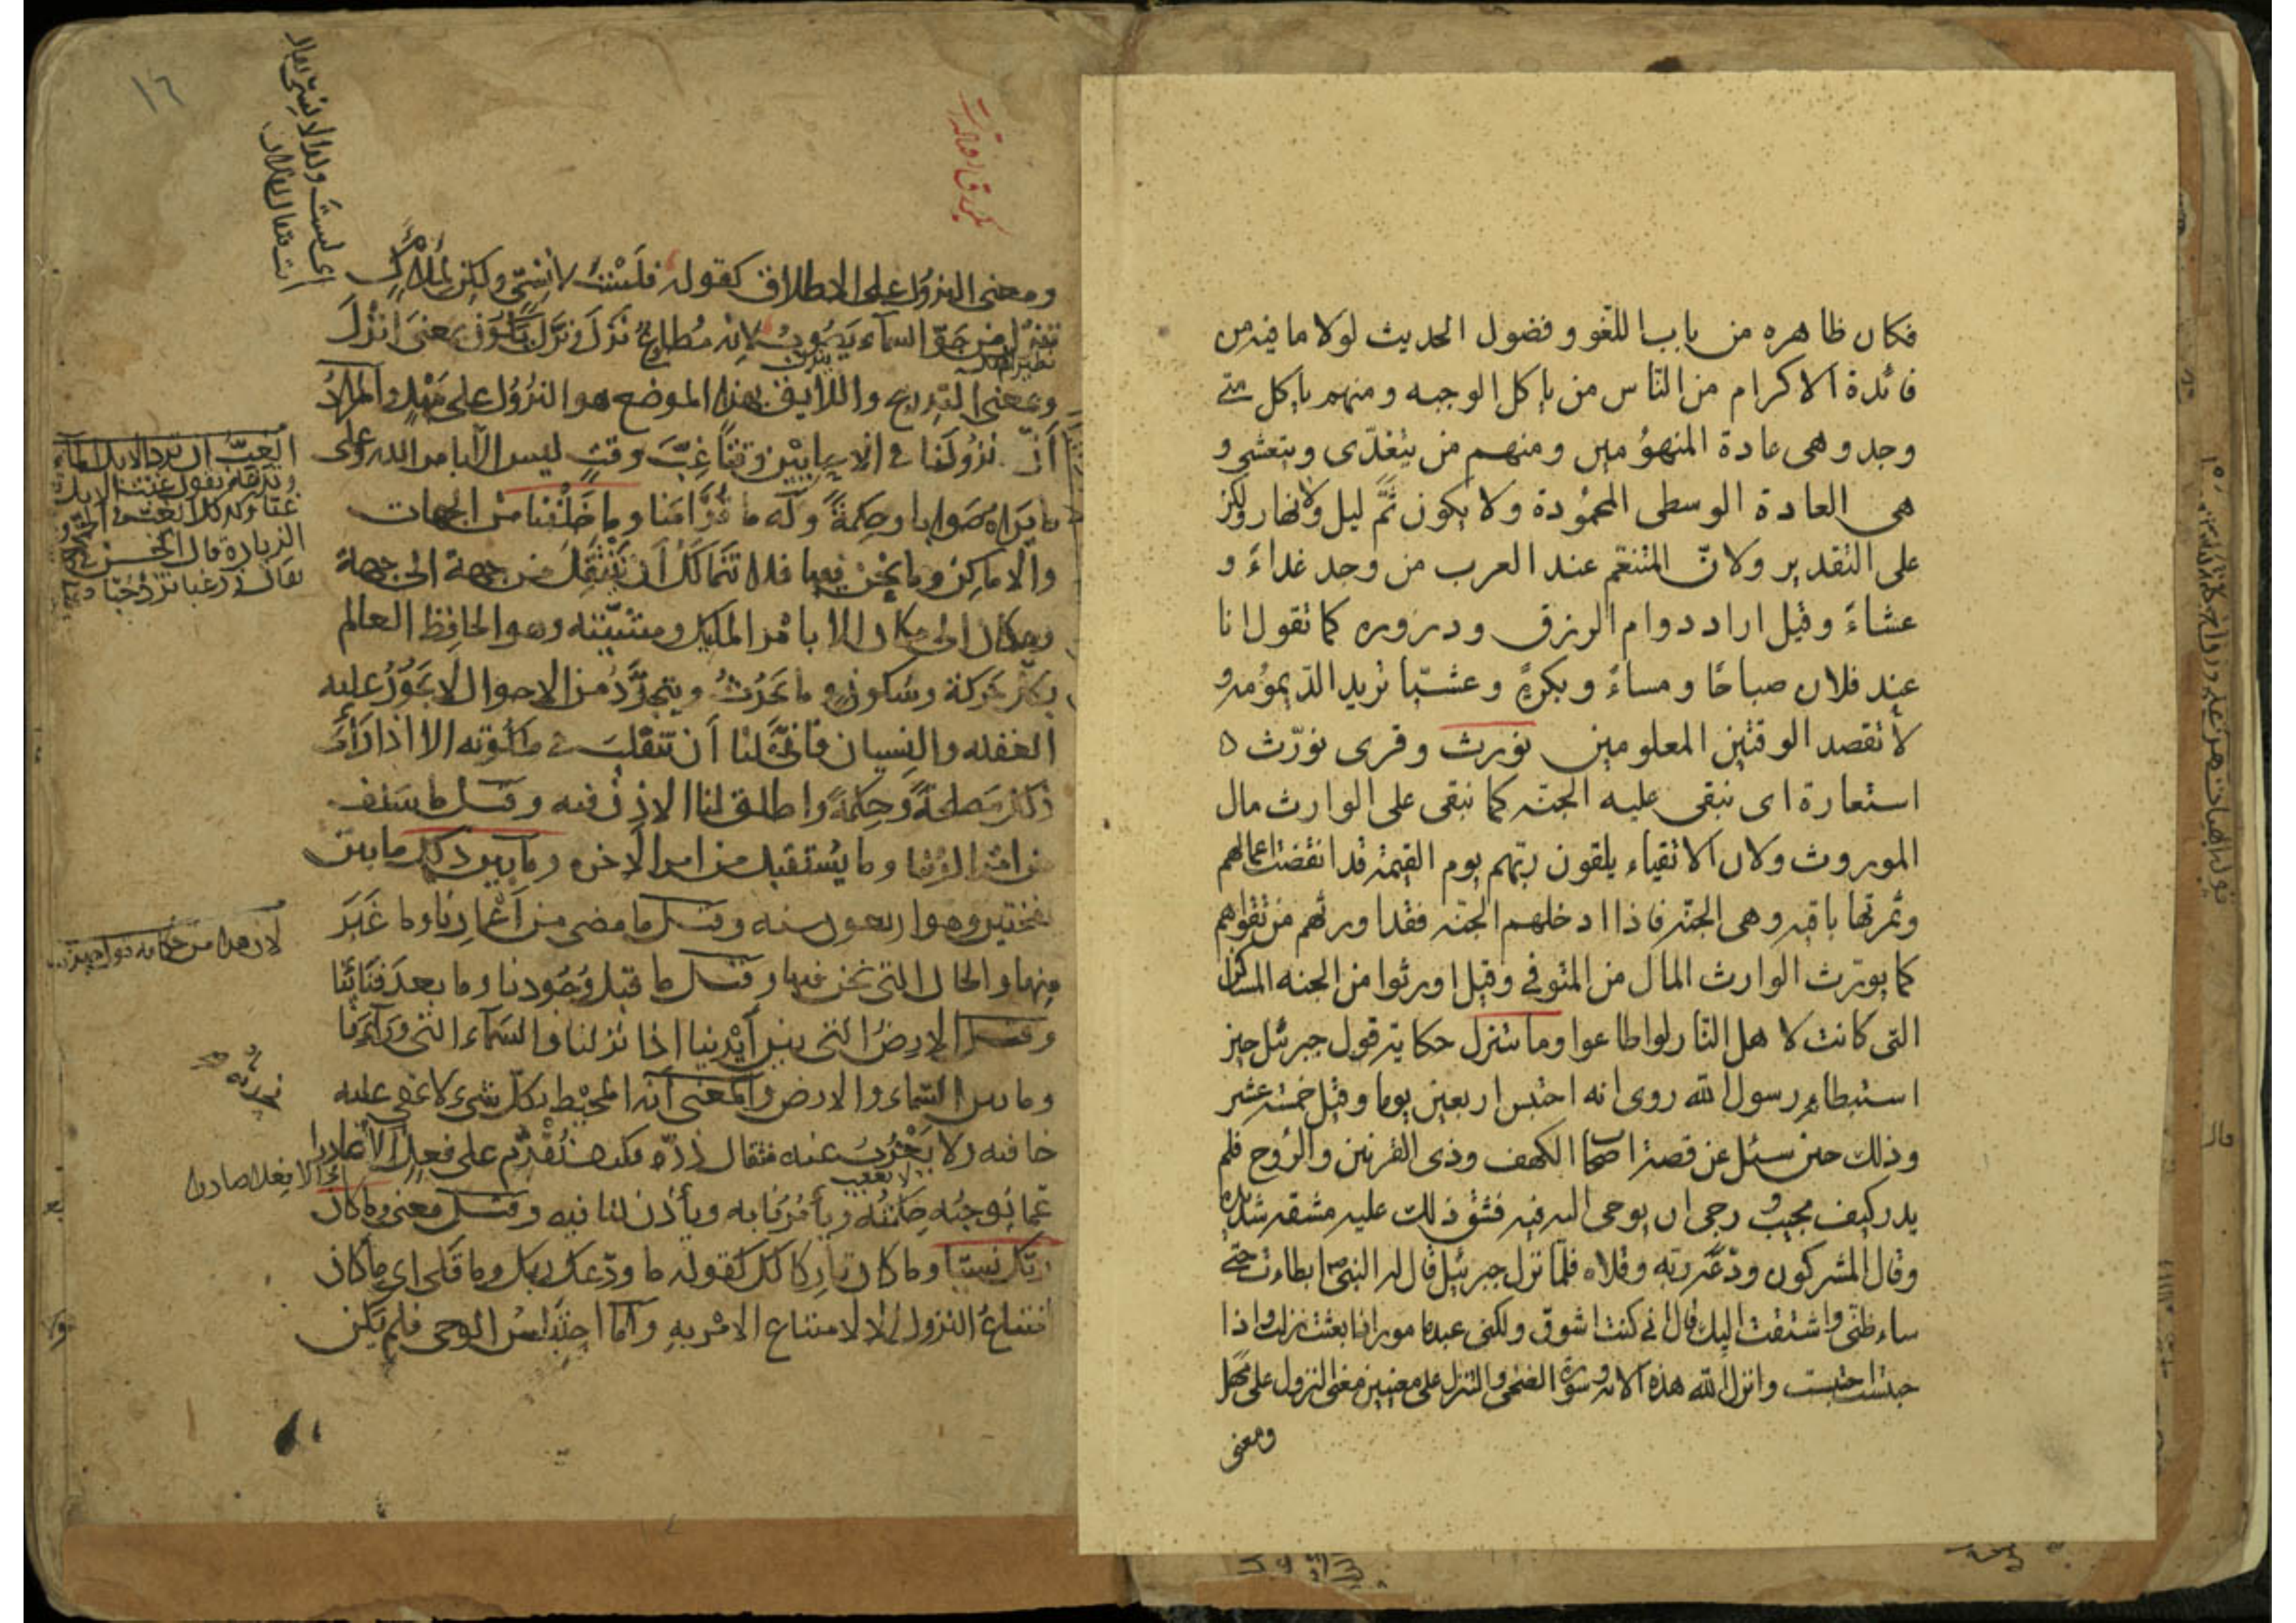 فكان ظاهره من باب اللغو وفضول الحديث لولا ما فيه من
فائدة الاكرام من الناس من ياكل الوجبه ومنهم ياكل متى
وجد وهى عادة المنهومين ومنهم من يتغدّى ويتعشى و
هى العادة الوسطى المحمودة ولا يكون ثَمَّ ليل ولا نهار ولكن
على التقدير ولانّ المتنعّم عند العرب من وجد غداءً و
عشاءً وقيل اراد دوام الرزق ودروره كما تقول انا
عند فلان صباحًا ومساءً وبكرةً وعشيّا تريد الديمومه و
لا تقصد الوقتين المعلومين نورث وقرى نورّث ه
استعارة اى نبقى عليه الجنّه كما نبقى على الوارث مال
الموروث ولان الاتقياء يلقون ربّهم يوم القيمة قد انقضت اعمالهم
وثمرتها باقيه وهى الجنّه فاذا ادخلهم الجنّه فقد اورثهم من تقواهم
كما يورّث الوارث المال من المتوفى وقيل اورثوا من الجنه المساكن
التى كانت لاهل النار لو اطاعوا وما نتنزل حكاية قول جبرئيل حين
استبطاه رسول الله روى انه احتبس اربعين يوما وقيل خمسة عشر
وذلك حين سئل عن قصة اصحاب الكهف وذى القرنين والروح فلم
يدر كيف يجيب ورجى ان يوحى اليه فيه فشق ذلك عليه مشقه شديده
وقال المشركون ودّعه ربّه وقلاه فلمّا نزل جبرئيل قال له النبى ابطاءت حتى
ساء ظنى واشتقت اليك قال انى كنت اشوق ولكنى عبد مامور اذا بعثت نزلت واذا
حبست احتبست وانزل الله هذه الايه وسورة الضحى والتنزل على معنيين معنى النزول على مهل
ومعنى
١٦
ومعنى النزول على الاطلاق كقوله فَلَسْتُ لِانْسِىّ ولكن لِمَلْأَكٍ
تنزّل من جَوِّ السماء يَصُوبُ لانه مُطاوع نَزَّلَ ونَزَّلَ يكون بمعنى انْزَلَ
وبمعنى التدريج واللايق بهذا الموضع هو النزول على مَهْلٍ والمراد
أنّ نزولنا فى الاحايين وقتًا غِبَّ وقتٍ ليس الا بامر الله وعلى
ما يراه صوابا وحِكمةً وله ما قُدّامنا وما خَلْفَنا من الجهات
والاماكن وما نحن فيها فلا نتمالك أن ننتقل من جهة الى جهة
ومكان الى مكان الا بامر المليك ومشيّته وهو الحافظ العالم
بكل حركة وسكون وما يَحْدُثُ ويتجدّدُ من الاحوال لا يجوز عليه
الغفله والنسيان فانّى لنا أن نتقلّب فى ملكوته الا اذا رأى
ذلك مصلحةً وحِكمةً واطلق لنا الاذن فيه وقيل ما سلف
من امر الدنيا وما يُستقبل من امر الاخره وما بين ذلك ما بين
النفختين وهو اربعون سنه وقيل ما مضى من أعمارنا وما غَبَرَ
منها والحال التى نحن فيها وقيل ما قبل وُجُودنا وما بعد فنائنا
وقيل الارض التى بين أيدينا اذا نزلنا والسماء التى وراءنا
وما بين السماء والارض والمعنى أنه المحيط بكل شىء لا تخفى عليه
خافيه ولا يَعْزُبُ عنه مثقال ذرّه فكيف نُقْدِم على فعلٍ الا
عمّا تُوجِبُه حِكمتُه ويأمرنا به ويأذن لنا فيه وقيل معنى وما كان
ربّك نسيّا وما كان تاركا لك كقوله ما ودّعك ربك وما قلى اى ما كان
امتناع النزول الا لامتناع الامر به وامّا احتباس الوحى فلم يكن
الغِبُّ ان ترد الابل الماء
لان هذا من
الا فعلا صادرا